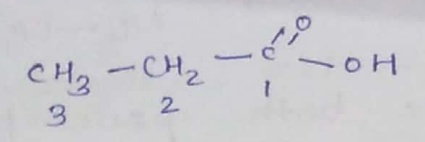 O
CH₃ – CH₂ – C – OH
3 2 1